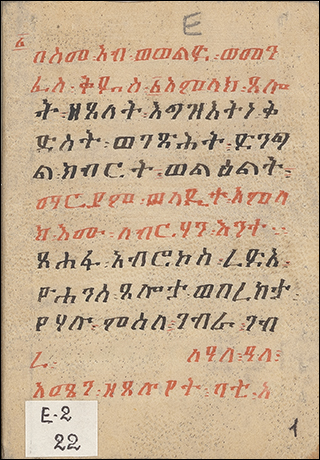 E
በስመ አብ ወወልድ ወመን
ፈስ ቅዱስ ፩አምላክ ጸሎ
ት ዘጸለት እግዝእትነ ቅ
ድስት ወንጽሕት ድንግ
ል ክብርት ወልዕልት
ማርያም ወላዲተ አምላ
ክ እሙ ለብርሃን እንተ
ጸሐፋ አብሮኮስ ረድአ
ዮሐንስ ጸሎታ ወበረከታ
የሃሉ ምስለ ገብራ ገብ
ለዓለ ዓለ
አሜን ባቲ እ
E-2
22
1